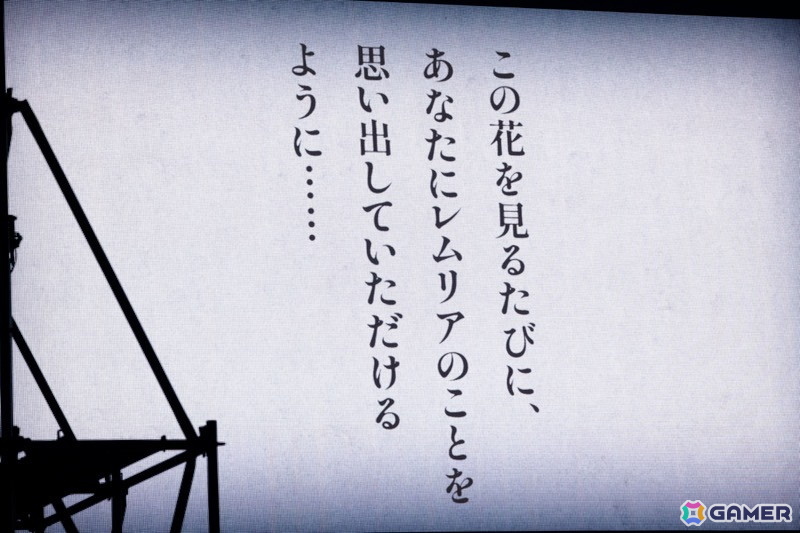 この花を見るたびに、
あなたにレムリアのことを
思い出していただける
ように……
GAMER